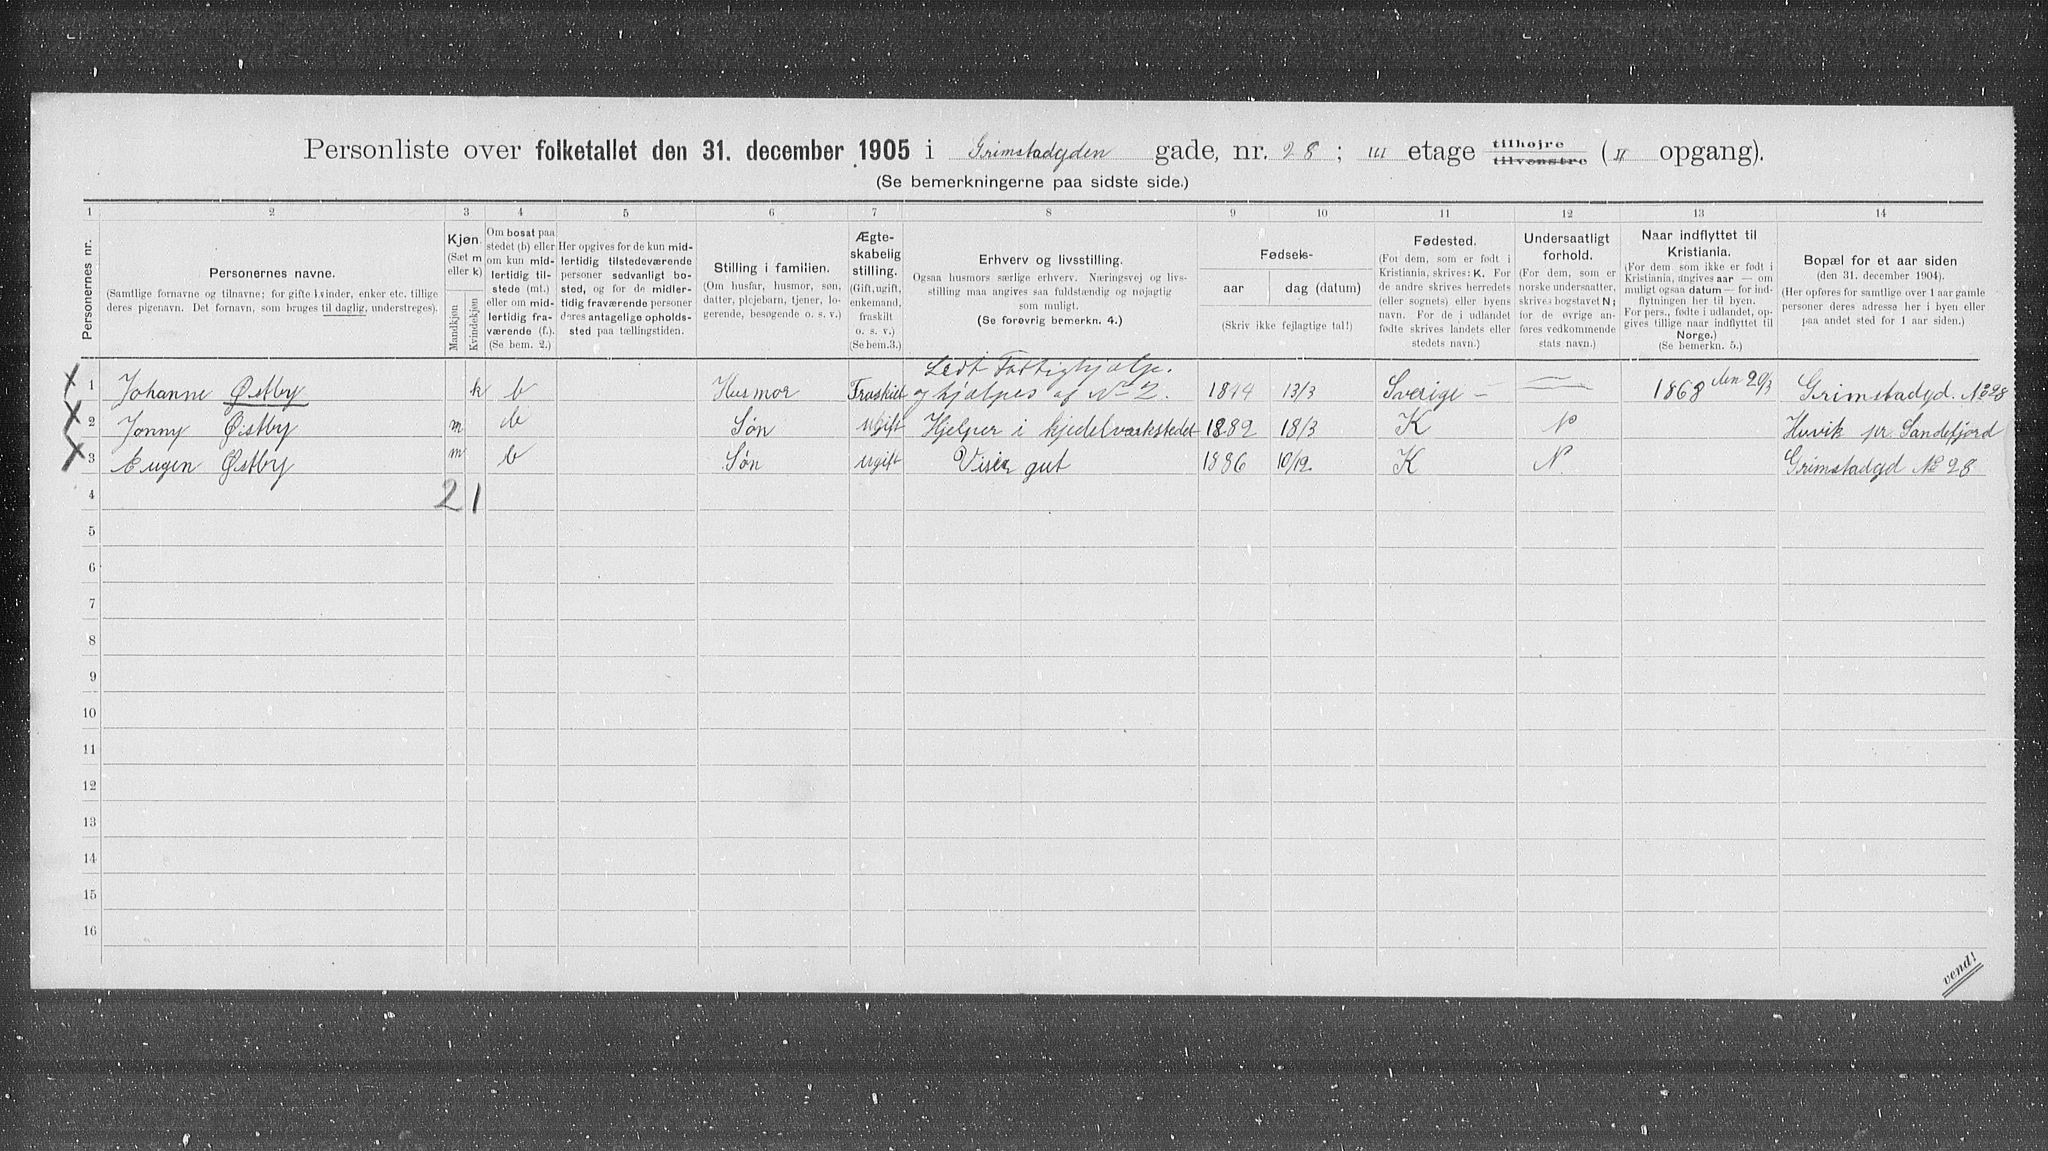 Personliste over folketallet den 31. december 1905 i Grimstadgden gade, nr. 28; III etage tilhøjre tilvenstre (II opgang).
(Se bemerkningerne paa sidste side.)
1 2 3 4 5 6 7 8 9 10 11 12 13 14
Personernes nr.
Personernes navne.
(Samtlige fornavne og tilnavne; for gifte kvinder, enker etc. tillige
deres pigenavn. Det fornavn, som bruges til daglig, understreges).
Kjøn.
(Sæt m
eller k)
Mandkjøn
Kvindekjøn
Om bosat paa
stedet (b) eller
om kun mid-
lertidig til-
stede (mt.)
eller om mid-
lertidig fra-
værende (f.).
(Se bem. 2.)
Her opgives for de kun mid-
lertidig tilstedeværende
personer sedvanligt bo-
sted, og for de midler-
tidig fraværende personer
deres antagelige opholds-
sted paa tællingstiden.
Stilling i familien.
(Om husfar, husmor, søn,
datter, plejebarn, tjener, lo-
gerende, besøgende o. s. v.)
Ægte-
skabelig
stilling.
(Gift, ugift,
enkemand,
fraskilt
o. s. v.)
(Se bem.3.)
Erhverv og livsstilling.
Ogsaa husmors særlige erhverv. Næringsvej og livs-
stilling maa angives saa fuldstændig og nøjagtig
som muligt.
(Se forøvrig bemerkn. 4.)
Fødsels-
aar
dag (datum)
(Skriv ikke fejlagtige tal!)
Fødested.
(For dem, som er født i
Kristiania, skrives: K. For
de andre skrives herredets
(eller sognets) eller byens
navn. For de i udlandet
fødte skrives landets eller
stedets navn.)
Undersaatligt
forhold.
(For dem, som er
norske undersaatter,
skrives bogstavet N;
for de øvrige an-
føres vedkommende
stats navn.)
Naar indflyttet til
Kristiania.
(For dem, som ikke er født i
Kristiania, angives aar — om
muligt ogsaa datum — for ind-
flytningen her til byen.
For pers., fødte i udlandet, op-
gives tillige naar indflyttet til
Norge.)
(Se bemerkn. 5.)
Bopæl for et aar siden
(den 31. december 1904).
(Her opføres for samtlige over 1 aar gamle
personer deres adresse her i byen eller
paa andet sted for 1 aar siden.)
Fattighjælp.
X 1 Johanne Østby k b Husmor Fraskilt og hjælpes af No 2. 1844 13/3 Sverige — 1868 den 20/3 Grimstadgd. No 28
X 2 Jonny Østby m b Søn ugift Hjelper i kjedelværkstedet 1882 18/3 K N Huvik pr. Sandefjord
X 3 Eugen Østby m b Søn ugift Viser gut 1886 10/12. K N. Grimstadgd No 28
4 2 1
5
6
7
8
9
10
11
12
13
14
15
16
vend!